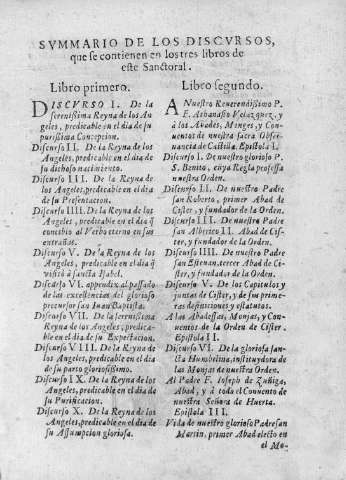 SVMMARIO DE LOS DISCVRSOS,
que se contienen en los tres libros de
este Sanctoral.
Libro primero.
DISCVRSO I. De la
serenissima Reyna de los An
geles, predicable en el dia de su
purissima Concepcion.
Discurso II. De la Reyna de los
Angeles, predicable en el dia de
su dichoso nacimiento.
Discurso III. De la Reyna de los
Angeles, predicable en el dia de
su Presentacion.
Discurso IIII. De la Reyna de los
Angeles, predicable en el dia q̃
concibio al Verbo eterno en sus
entrañas.
Discurso V. De la Reyna de los
Angeles, predicable en el dia q̃
visitò a sancta Isabel.
Discurso VI. appendix al passado
de las excelencias del glorioso
precursor san Iuan Baptista.
Discurso VII. De la serenissima
Reyna de los Angeles, predica-
ble en el dia de su Expectacion.
Discurso VIII. De la Reyna de
los Angeles, predicable en el dia
de su parto gloriosissimo.
Discurso IX. De la Reyna de los
Angeles, predicable en el dia de
su Purificacion.
Discurso X. De la Reyna de los
Angeles, predicable en el dia de
su Assumpcion gloriosa.
Libro segundo.
A Nuestro Reuerendissimo P.
F. Athanasio Velazquez, y
à los Abades, Monges, y Con-
uentos de nuestra sacra Obser-
uancia de Castilla. Epistola I.
Discurso I. De nuestro glorioso P.
S. Benito, cuya Regla professa
nuestra Orden.
Discurso II. De nuestro Padre
san Roberto, primer Abad de
Cister, y fundador de la Orden.
Discurso III. De nuestro Padre
san Alberico II. Abad de Cis-
ter, y fundador de la Orden.
Discurso IIII. De nuestro Padre
san Esteuan, tercer Abad de Cis-
ter, y fundador de la Orden.
Discurso V. De los Capitulos y
juntas de Cister, y de sus prime-
ras definiciones y estatutos.
A las Abadessas, Monjas, y Con-
uentos de la Orden de Cister.
Epistola II.
Discurso VI. De la gloriosa san-
cta Humbelina, instituydora de
las Monjas de nuestra Orden.
Al Padre F. Ioseph de Zuñiga,
Abad, y à todo el Conuento de
nuestra Señora de Huerta.
Epistola III.
Vida de nuestro glorioso Padre san
Martin, primer Abad electo en
el Mo-